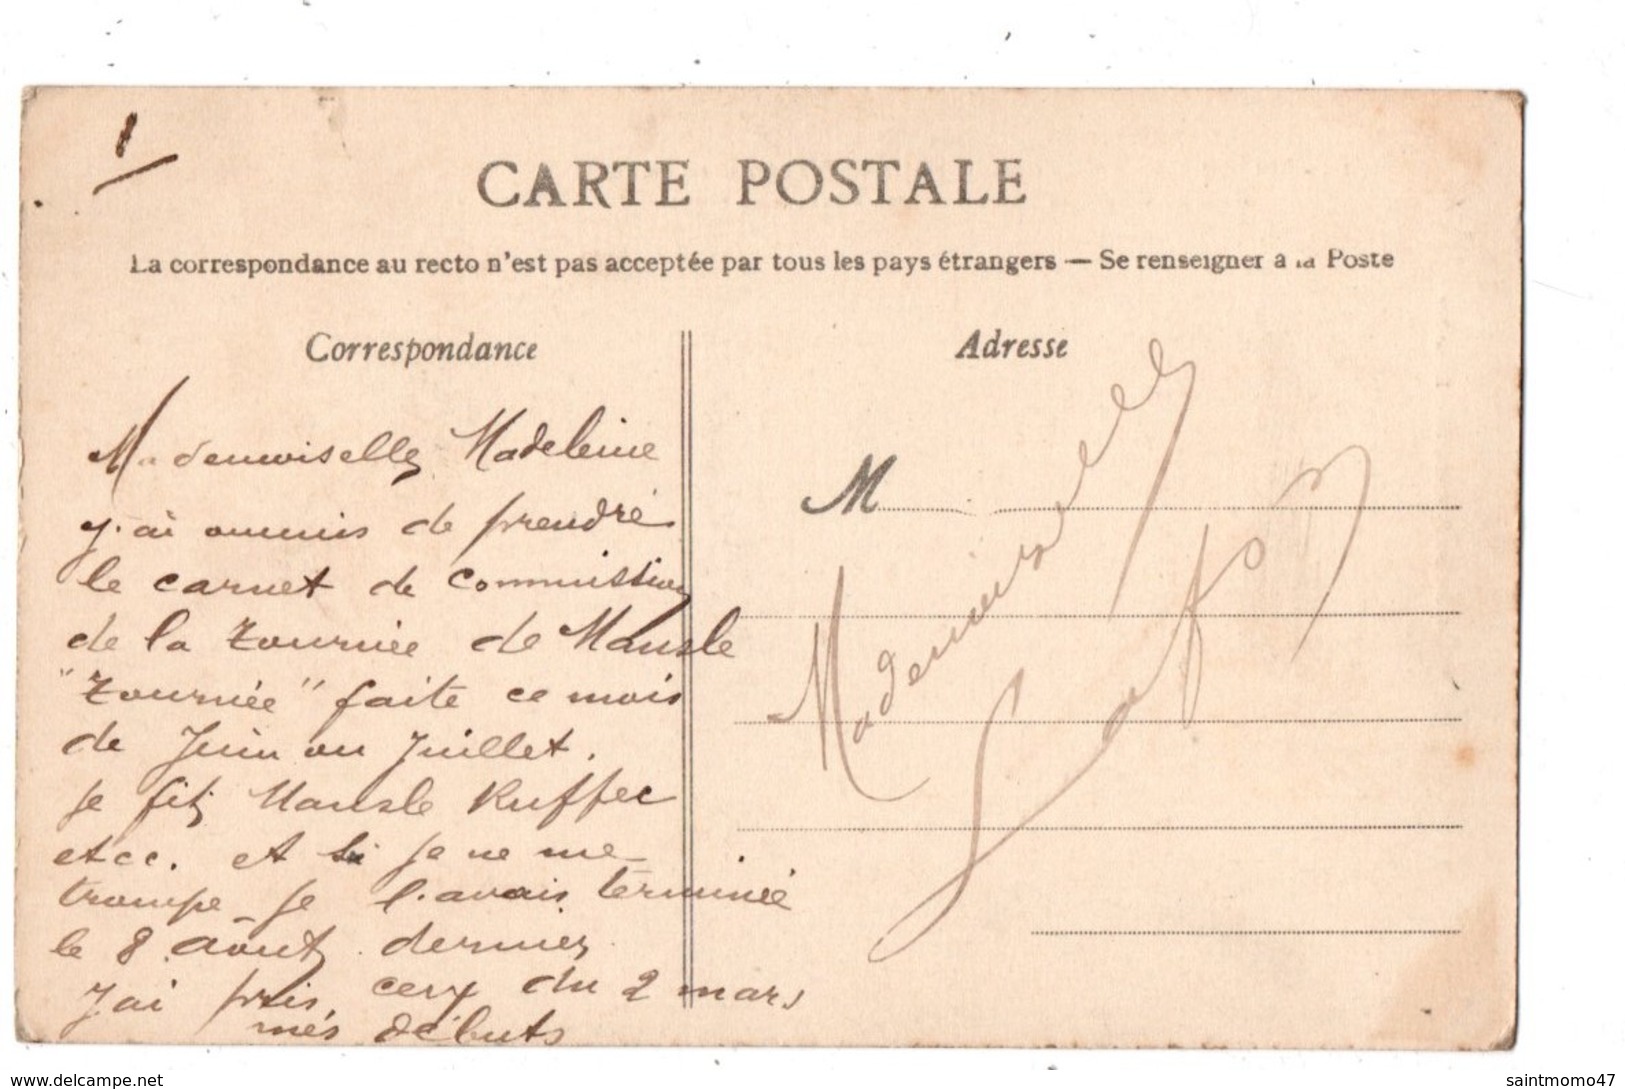 1
CARTE POSTALE
La correspondance au recto n'est pas acceptée par tous les pays étrangers — Se renseigner à la Poste
Correspondance
Mademoiselle Madeleine
j'ai ommis de prendre
le carnet de Commission
de la tournée de Mansle
"tournée" faite ce mois
de Juin ou Juillet.
je fis Mansle Ruffec
etcc. et si je ne me
trompe je l'avais terminée
le 8 Août dernier
J'ai pris cerx du 2 mars
mes débuts
Adresse
M
Mademoiselle
Lafon
www.delcampe.net
saintmomo47